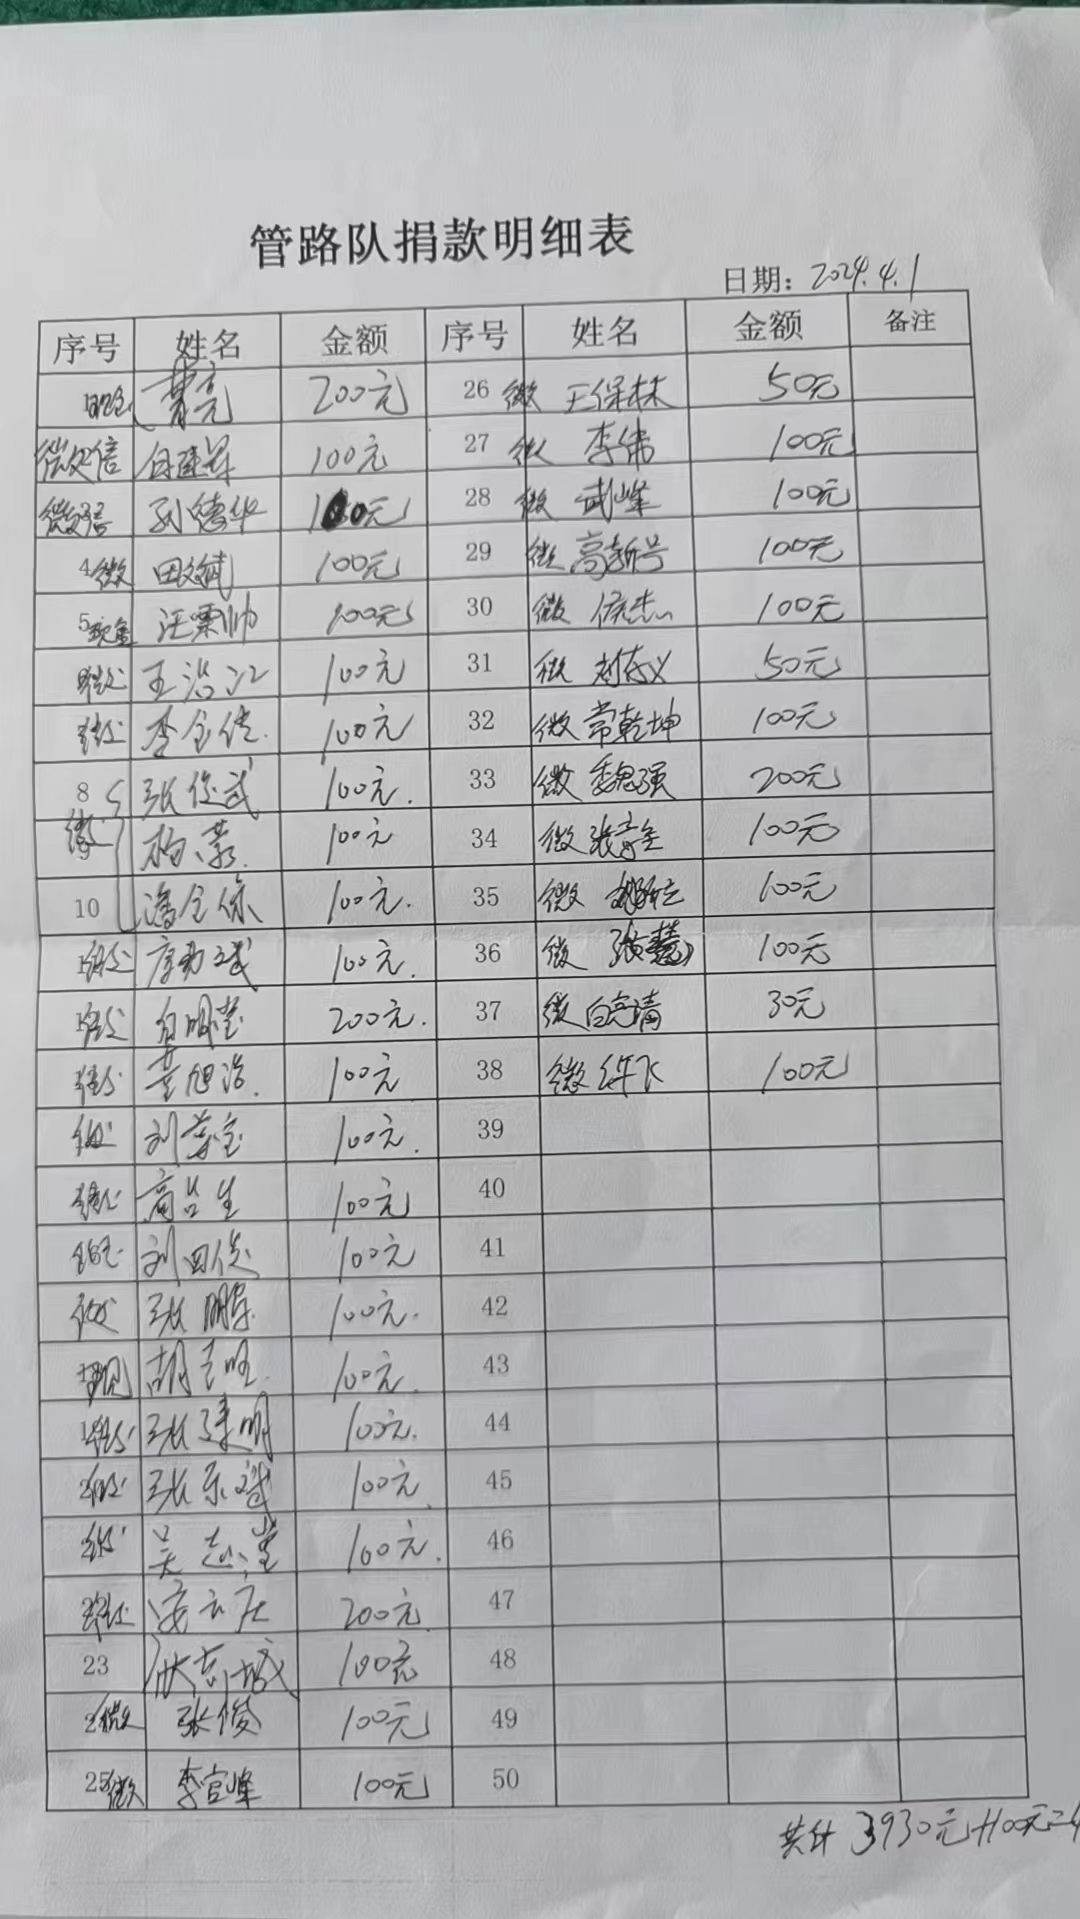 管路队捐款明细表
日期: 2024.4.1
序号 姓名 金额 序号 姓名 金额 备注
现金 曹亮 200元 26 微 王保林 50元
微信 白建军 100元 27 微 李伟 100元
微信 孙德华 100元 28 微 武峰 100元
4 微 田文斌 100元 29 微 高新号 100元
5 现金 汪霄帅 100元 30 微 侯杰 100元
微 王浩江 100元 31 微 刘存义 50元
微 李全优 100元 32 微 常乾坤 100元
8 张俊武 100元 33 微 魏强 200元
微 杨慕 100元 34 微 张 100元
10 潘全保 100元 35 微 100元
微 唐勤斌 100元 36 微 张慧 100元
微 白明莹 200元 37 微 白亮清 30元
微 旭浩 100元 38 微 许飞 100元
微 刘荣宝 100元 39
微 高占生 100元 40
刘田俊 100元 41
微 张鹏军 100元 42
现 胡志旺 100元 43
微 张建明 100元 44
微 张乐斌 100元 45
微 吴志莹 100元 46
微 安云庄 200元 47
23 志城 100元 48
2 微 张俊 100元 49
25 微 李官峰 100元 50
共计 3930元+100元=4